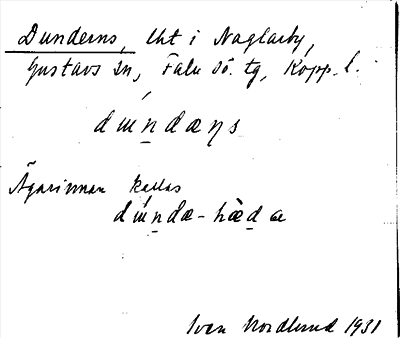 Dunderns, lht i Naglarby,
Gustavs sn, Falu sö. tg, Kopp. l.
dɯ́n̠dæn̠s
Ägarinnan kallas
dɯ́n̠dæ-hæ̀d̠a
Ivar Nordlund 1931